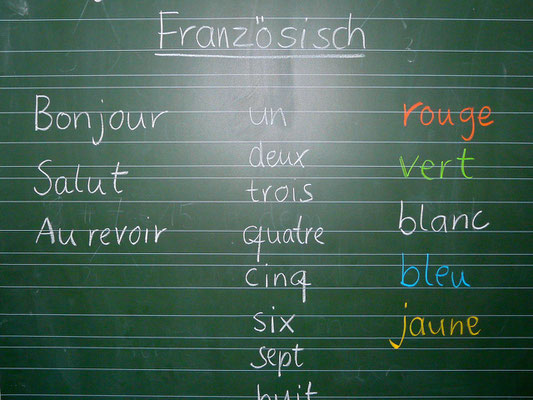 Französisch
Bonjour
Salut
Au revoir
un
deux
trois
quatre
cinq
six
sept
huit
rouge
vert
blanc
bleu
jaune